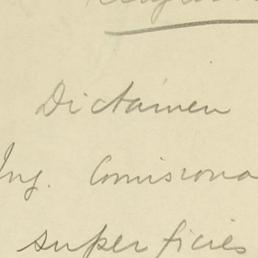 Dictamen
Ing. Comisiona
superficies